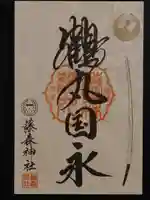 鶴丸国永
藤森神社